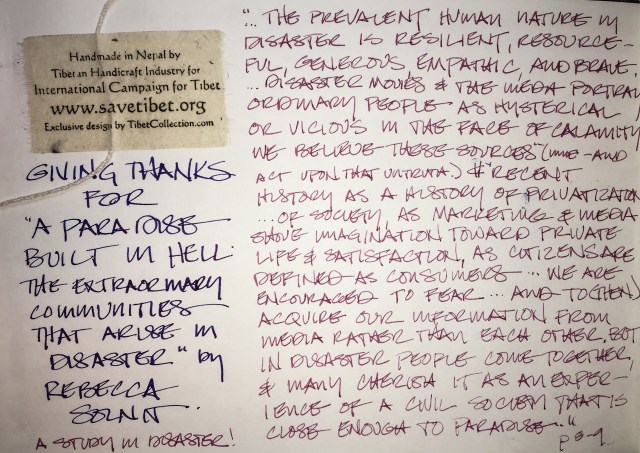 Handmade in Nepal by
Tibetan Handicraft Industry for
International Campaign for Tibet
www.savetibet.org
Exclusive design by TibetCollection.com
GIVING THANKS
FOR
"A PARADISE
BUILT IN HELL:
THE EXTRAORDINARY
COMMUNITIES
THAT ARISE IN
DISASTER" by
REBECCA
SOLNIT.
A STUDY IN DISASTER!
"... THE PREVALENT HUMAN NATURE IN
DISASTER IS RESILIENT, RESOURCE-
FUL, GENEROUS EMPATHIC, AND BRAVE.
... DISASTER MOVIES & THE MEDIA PORTRAY
ORDINARY PEOPLE AS HYSTERICAL
OR VICIOUS IN THE FACE OF CALAMITY
WE BELIEVE THESE SOURCES" (AND
ACT UPON THAT UNTRUTH.) "RECENT
HISTORY AS A HISTORY OF PRIVATIZATION
... OF SOCIETY, AS MARKETING & MEDIA
SHOVE IMAGINATION TOWARD PRIVATE
LIFE & SATISFACTION, AS CITIZENS ARE
DEFINED AS CONSUMERS ... WE ARE
ENCOURAGED TO FEAR ... AND TO (THEN)
ACQUIRE OUR INFORMATION FROM
MEDIA RATHER THAN EACH OTHER. BUT
IN DISASTER PEOPLE COME TOGETHER,
& MANY CHERISH IT AS AN EXPER-
IENCE OF A CIVIL SOCIETY THAT IS
CLOSE ENOUGH TO PARADISE..."